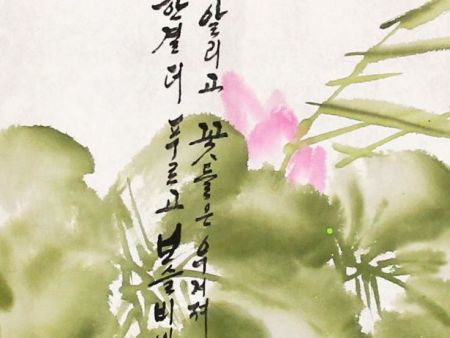 알리고 꽃들은 우거져
한결 더 푸르고 보슬비